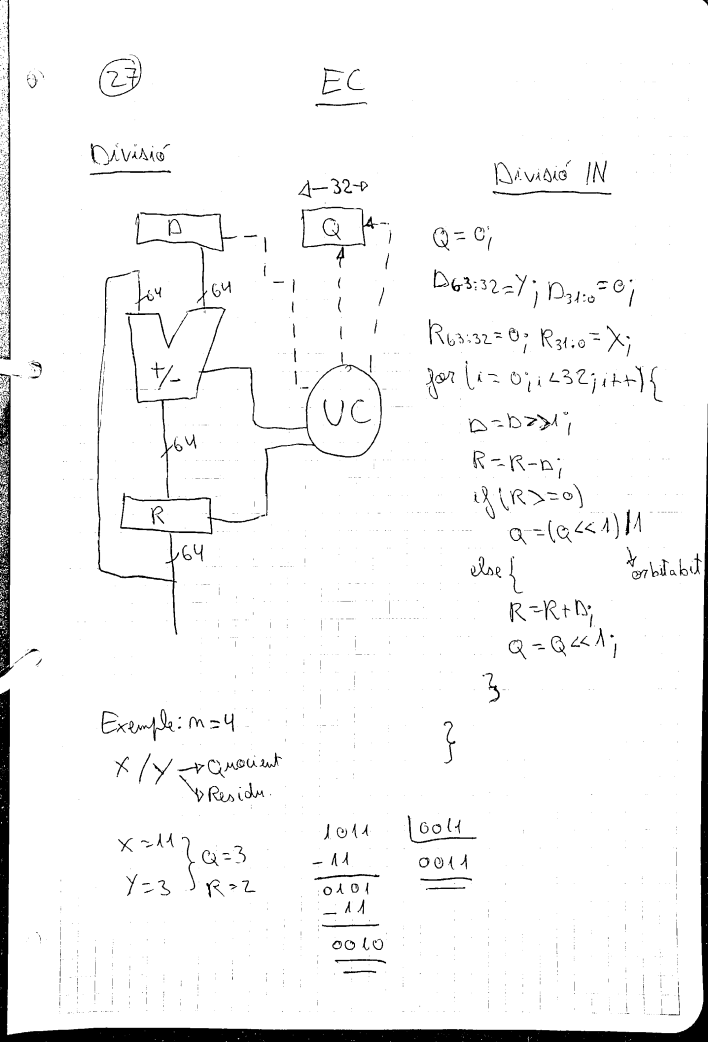 27
EC
Divisió
32
D
Q
64
64
+/-
UC
64
R
64
Divisió IN
Q = 0;
D63:32=Y; D31:0=0;
R63:32=0; R31:0=X;
for (i=0; i<32; i++){
D=D>>1;
R=R-D;
if (R>=0)
Q=(Q<<1)|1
or bit a bit
else {
R=R+D;
Q=Q<<1;
}
}
Exemple: n=4
X/Y → Quocient
Residu.
X=11
Y=3
Q=3
R=2
1011 0011
-11 0011
0101
-11
0010